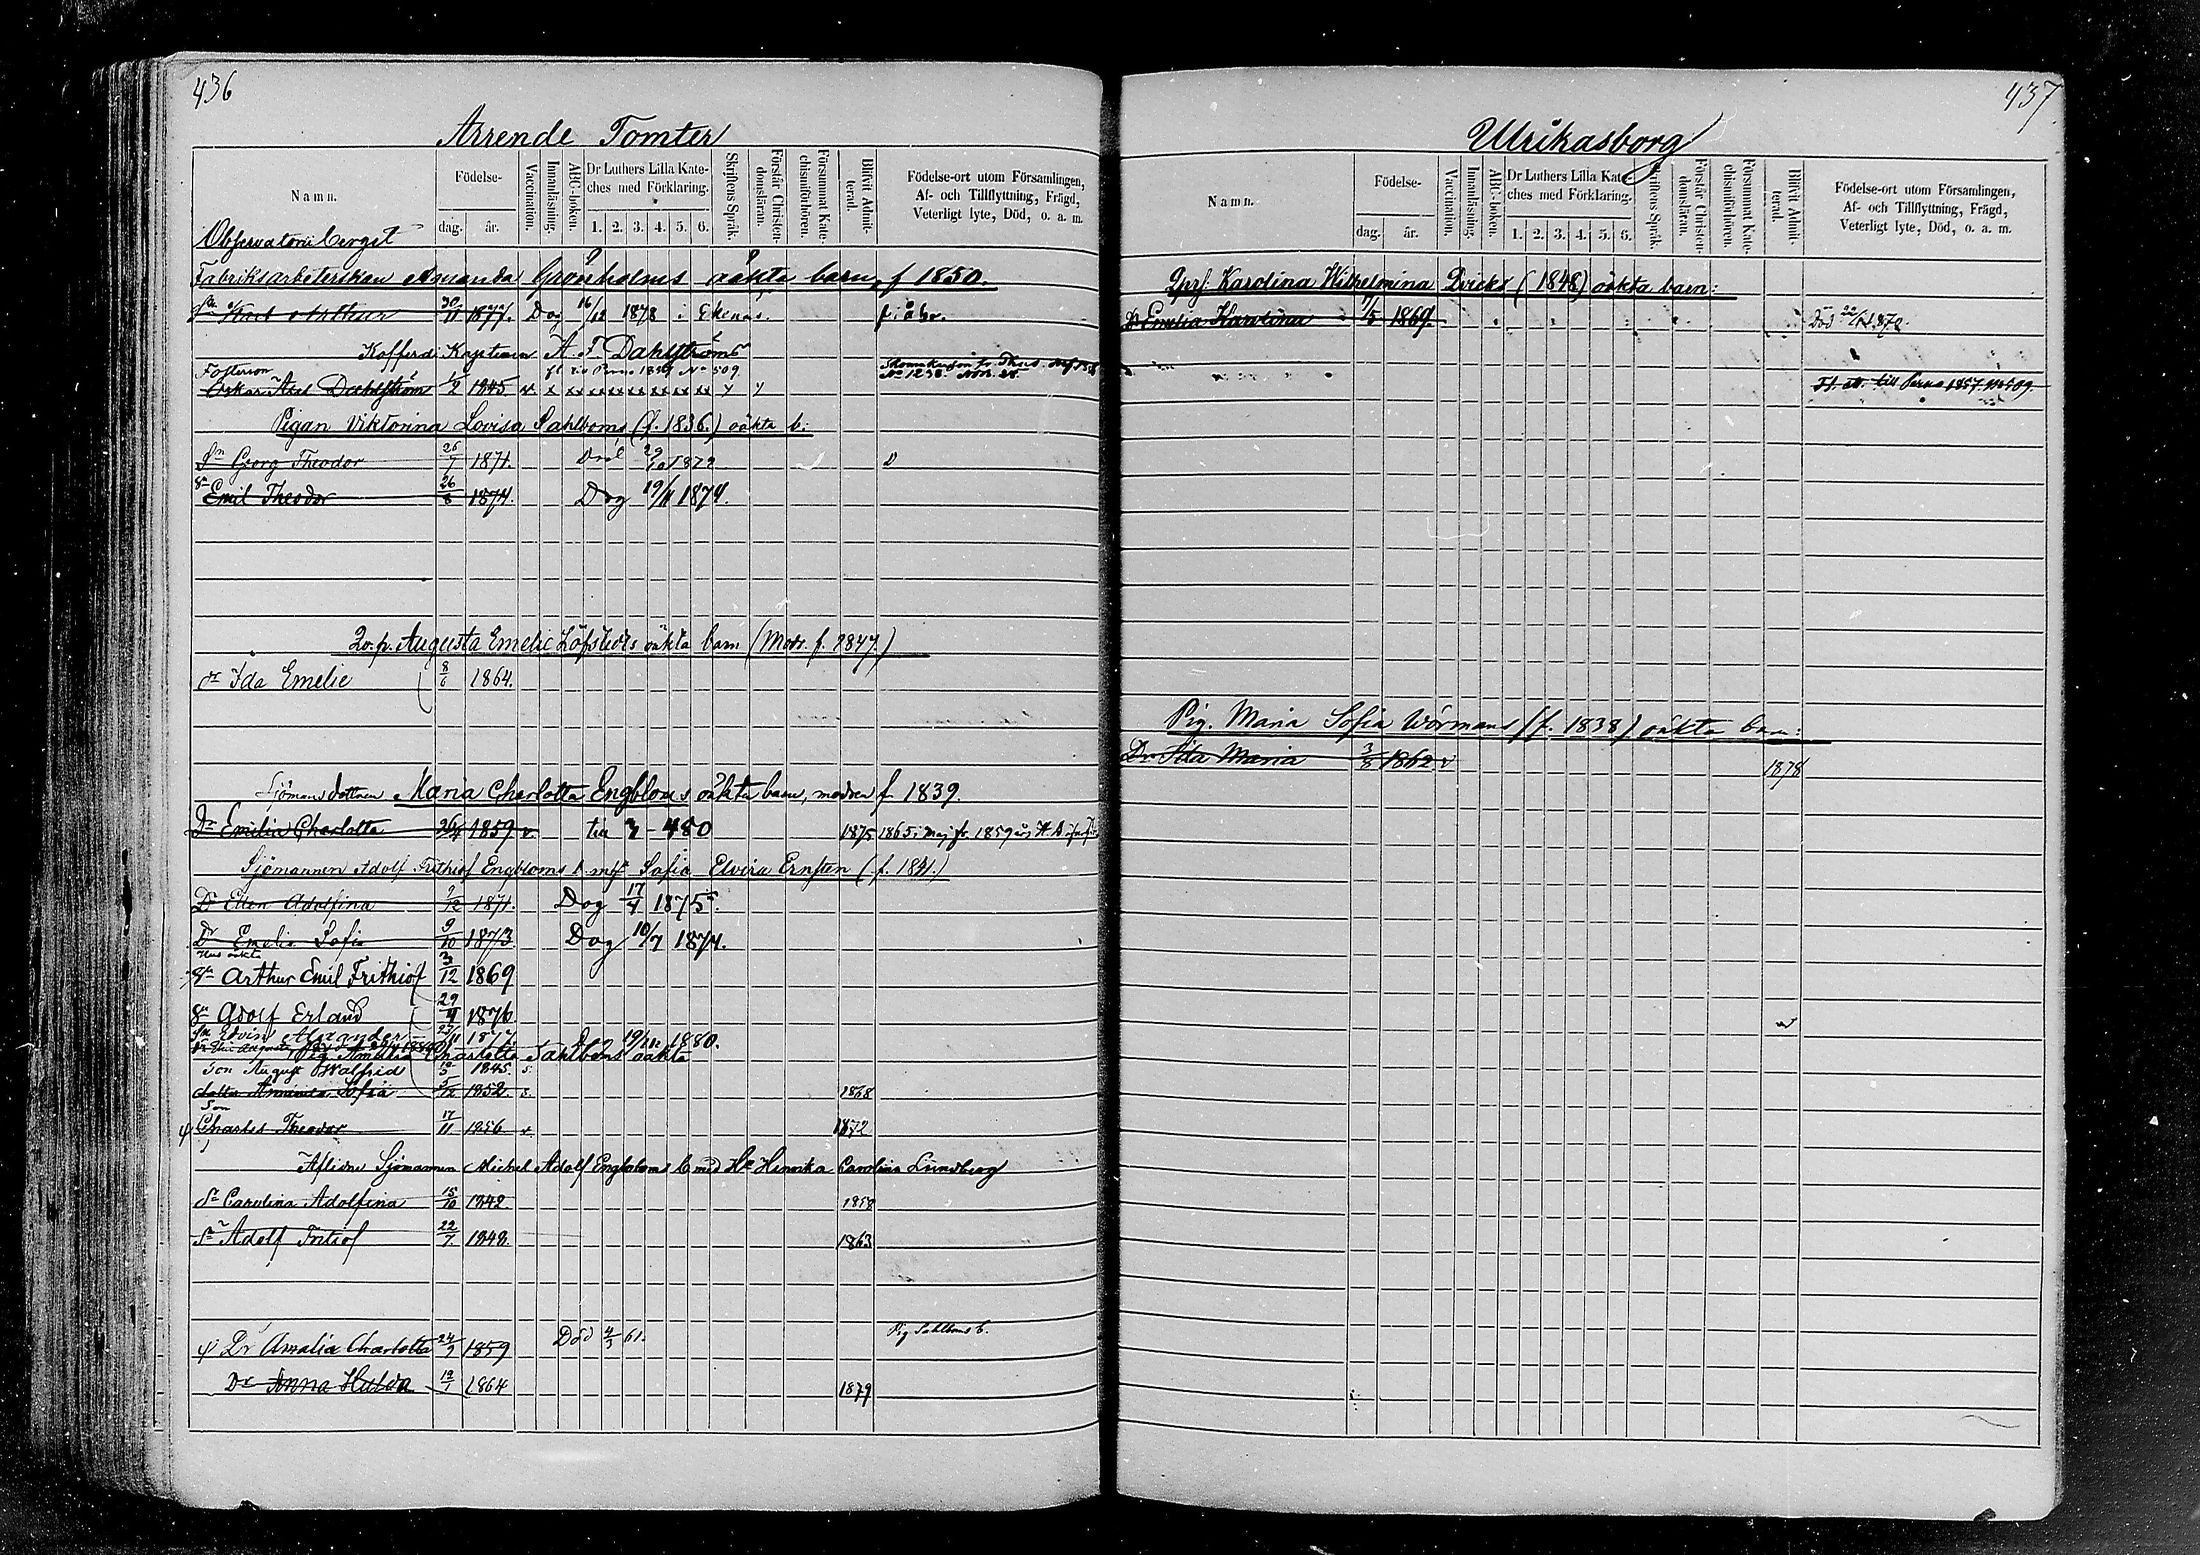 436
Arrende Tomter
Namn.
Födelse-
dag. år.
Vaccination.
Innanläsning.
ABC-boken.
Dr Luthers Lilla Kate-
ches med Förklaring.
1. 2. 3. 4. 5. 6.
Skriftens Språk.
Förstår Christen-
domsläran.
Försummat Kate-
chismiförhören.
Blifvit Admit-
terad.
Födelse-ort utom Församlingen,
Af- och Tillflyttning, Frägd,
Veterligt lyte, Död, o. a. m.
Observatorii berget
Fabriksarbeterskan Amanda Grönholms oäkta barn, f 1850.
Sn Karl Arthur 30/11 1877. Dog 16/12 1878 i Ekenäs. f. i Åbo.
Kofferdi Kaptenen A. F. Dahlströms
Fosterson
Oskar Axel Dahlström 1/2 1845. v. x xx xx xx xx xx xx xx y y
Pigan Viktorina Lovisa Sahlboms (f. 1836.) oäkta b:
Sn Georg Theodor 26/7 1871. Död 29/10 1872
Sn Emil Theodor 26/8 1874. Dog 19/11 1874.
Qv.p. Augusta Emelie Löfstedts oäkta barn (Modr. f. 1847.)
Dr Ida Emelie 8/6 1864.
Sjömansdottren Maria Charlotta Engbloms oäkta barn, modren f. 1839.
Dr Emilia Charlotta 26/4 1859 v. till 3-480 1875 1865 i maj fr. 1859
Sjömannen Adolf Frithiof Engbloms b m h Sofia Elvira Ernsten (f. 1841.)
Dr Ellen Adolfina 9/12 1871. Dog 17/4 1875.
Dr Emelie Sofia 9/10 1873. Dog 10/7 1874.
Hus oäkta
Sn Arthur Emil Frithiof 3/12 1869
Sn Adolf Erland 29/4 1876.
Sn Edvin Alexander 27/11 1877 Dog 19/12 1880.
Pig Amalia Charlotta Sahlboms oäkta
Son August Walfrid 1845. s.
dotter Amanda Sofia 5/12 1852. s. 1868
Son
Charles Theodor 17/11 1856 v. 1872
Aflidne Sjömannen Michel Adolf Engbloms b med Hu Henrika Carolina Lundberg
Dr Carolina Adolfina 15/10 1842. 1858
Sn Adolf Fritiof 22/7. 1848. 1863
Dr Amalia Charlotta 24/9 1859 Död 4/3 61. Pig Sahlboms b.
Dr Anna Hulda 19/1 1864 1879
437
Ulrikasborg
Namn.
Födelse-
dag. år.
Vaccination.
Innanläsning.
ABC-boken.
Dr Luthers Lilla Kate-
ches med Förklaring.
1. 2. 3. 4. 5. 6.
Skriftens Språk.
Förstår Christen-
domsläran.
Försummat Kate-
chismiförhören.
Blifvit Admit-
terad.
Födelse-ort utom Församlingen,
Af- och Tillflyttning, Frägd,
Veterligt lyte, Död, o. a. m.
Qprs. Karolina Wilhelmina Dvicks (1848) oäkta barn:
Dr Emelia Karolina 7/5 1869. Död 22/4 1870.
Fl. att. till Perno 1857. No 509.
Pig. Maria Sofia Wörmans (f. 1838) oäkta barn:
Dr Ida Maria 3/8 1862 v 1878